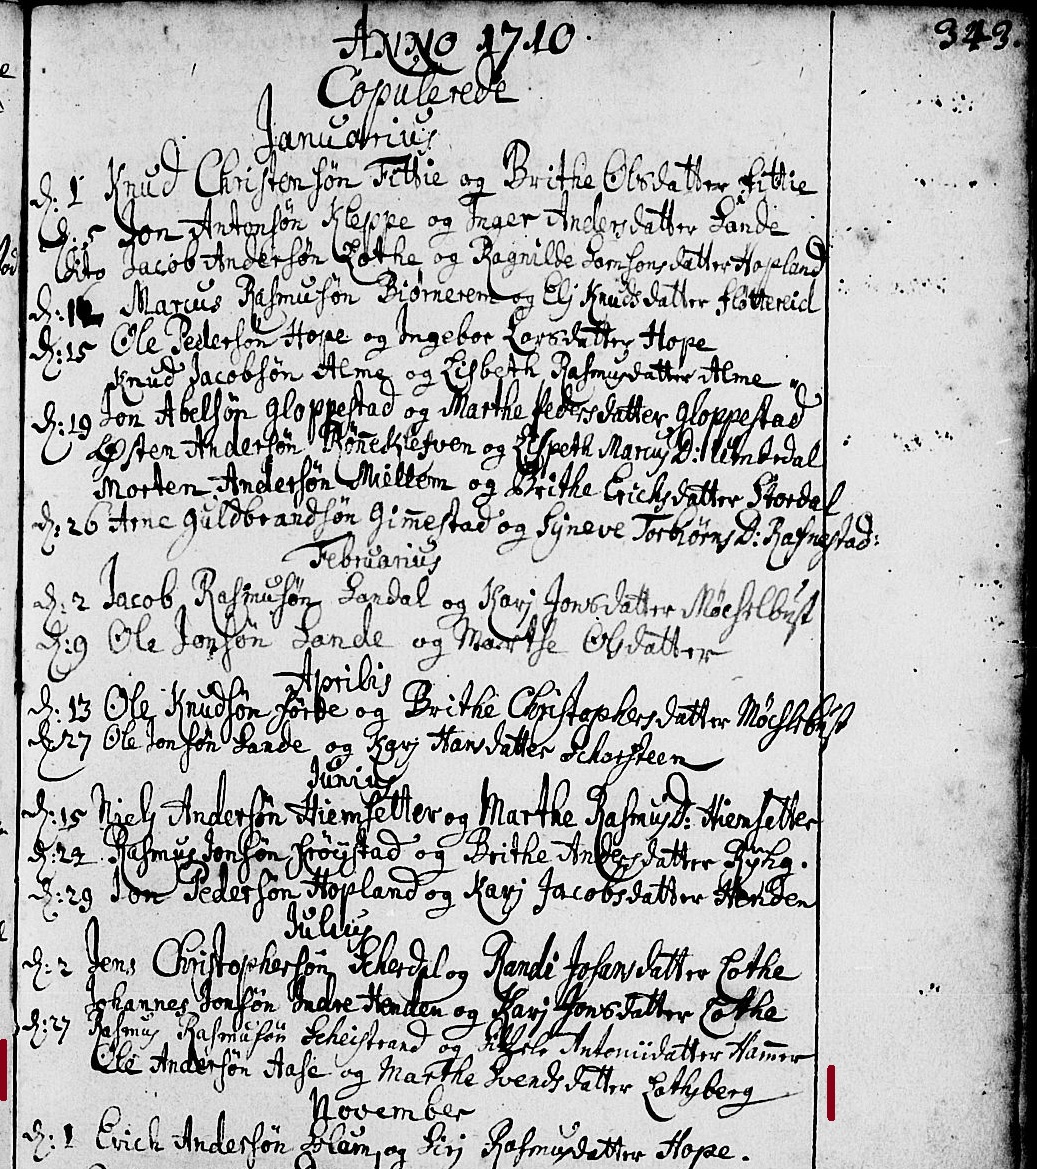 ANNO 1710.
343.
Copulerede
Januarius
d: 1 Knud Christensøn Fittie og Brithe Olsdatter Fittie
d: 5 Jon Antonsøn Kleppe og Inger Andersdatter Lande
dito Jacob Andersøn Lothe og Ragnilde Samsonsdatter Hopland
Marcus Rasmusøn Biørnerem og Elj Knudsdatter Fløttereid
d: 15 Ole Pedersøn Hope og Ingebor Larsdatter Hope
Knud Jacobsøn Alme og Lisbeth Rasmusdatter Alme
d: 19 Jon Abelsøn Gloppestad og Marthe Pedersdatter Gloppestad
Østen Andersøn og Lispeth Marcus D:
Morten Andersøn Mellem og Brithe Erichsdatter Stordal
d: 26 Arne Guldbrandsøn Gim̄estad og Syneve Torbiørns D: Rafnestad:
Februarius
d: 2 Jacob Rasmusøn Sandal og Karj Jonsdatter Møchelbust
d: 9 Ole Jonsøn Lande og Marthe Olsdatter
Aprilis
d: 13 Ole Knudsøn Førde og Brithe Christophersdatter Møchelbust
d: 27 Ole Jonsøn Lande og Karj Hansdatter Schorsteen
Junius
d: 15 Niels Andersøn Hiemsetter og Marthe Rasmus D: Hiemsetter
d: 24 Rasmus Jonsøn Frøystad og Brithe Andersdatter Ryhg.
d: 29 Jon Pedersøn Hopland og Karj Jacobsdatter Henden
Julius
d: 2 Jens Christophersøn Scherdal og Randi Johansdatter Lothe
Johannes Jonsøn Indre Henden og Karj Jonsdatter Lothe
d: 27 Rasmus Rasmusøn Scheistrand og Antoniidatter Hammer
Ole Andersøn Aase og Marthe Svendsdatter Lothsberg
November
d: 1 Erich Andersøn og Sirj Rasmusdatter Hope.